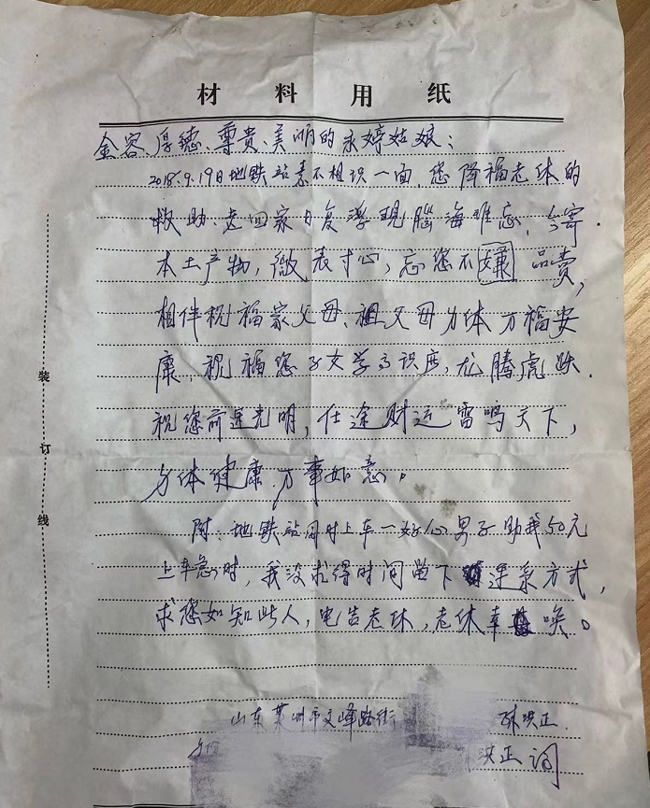 材料用纸
金容、厚德、尊贵、美丽的永婷姑娘：
2018.9.19日地铁站素不相识一面，您降福老休的
救助，走回家力复浮现腦海难忘，今寄
本土产物，微表寸心，忘您不嫌品赏，
相伴祝福家父母、祖父母身体万福安
康，祝福您子女学高识广，龙腾虎跃.
祝您前途光明，仕途财运雷鸣天下，
身体健康，万事如意。
附：地铁站同时上车一好心男子助我50元
上车急时，我没求得时间留下连系方式，
求您如知此人，电告老休，老休幸唤。
山东莱州市文峰路街
洪正
洪正
装
订
线